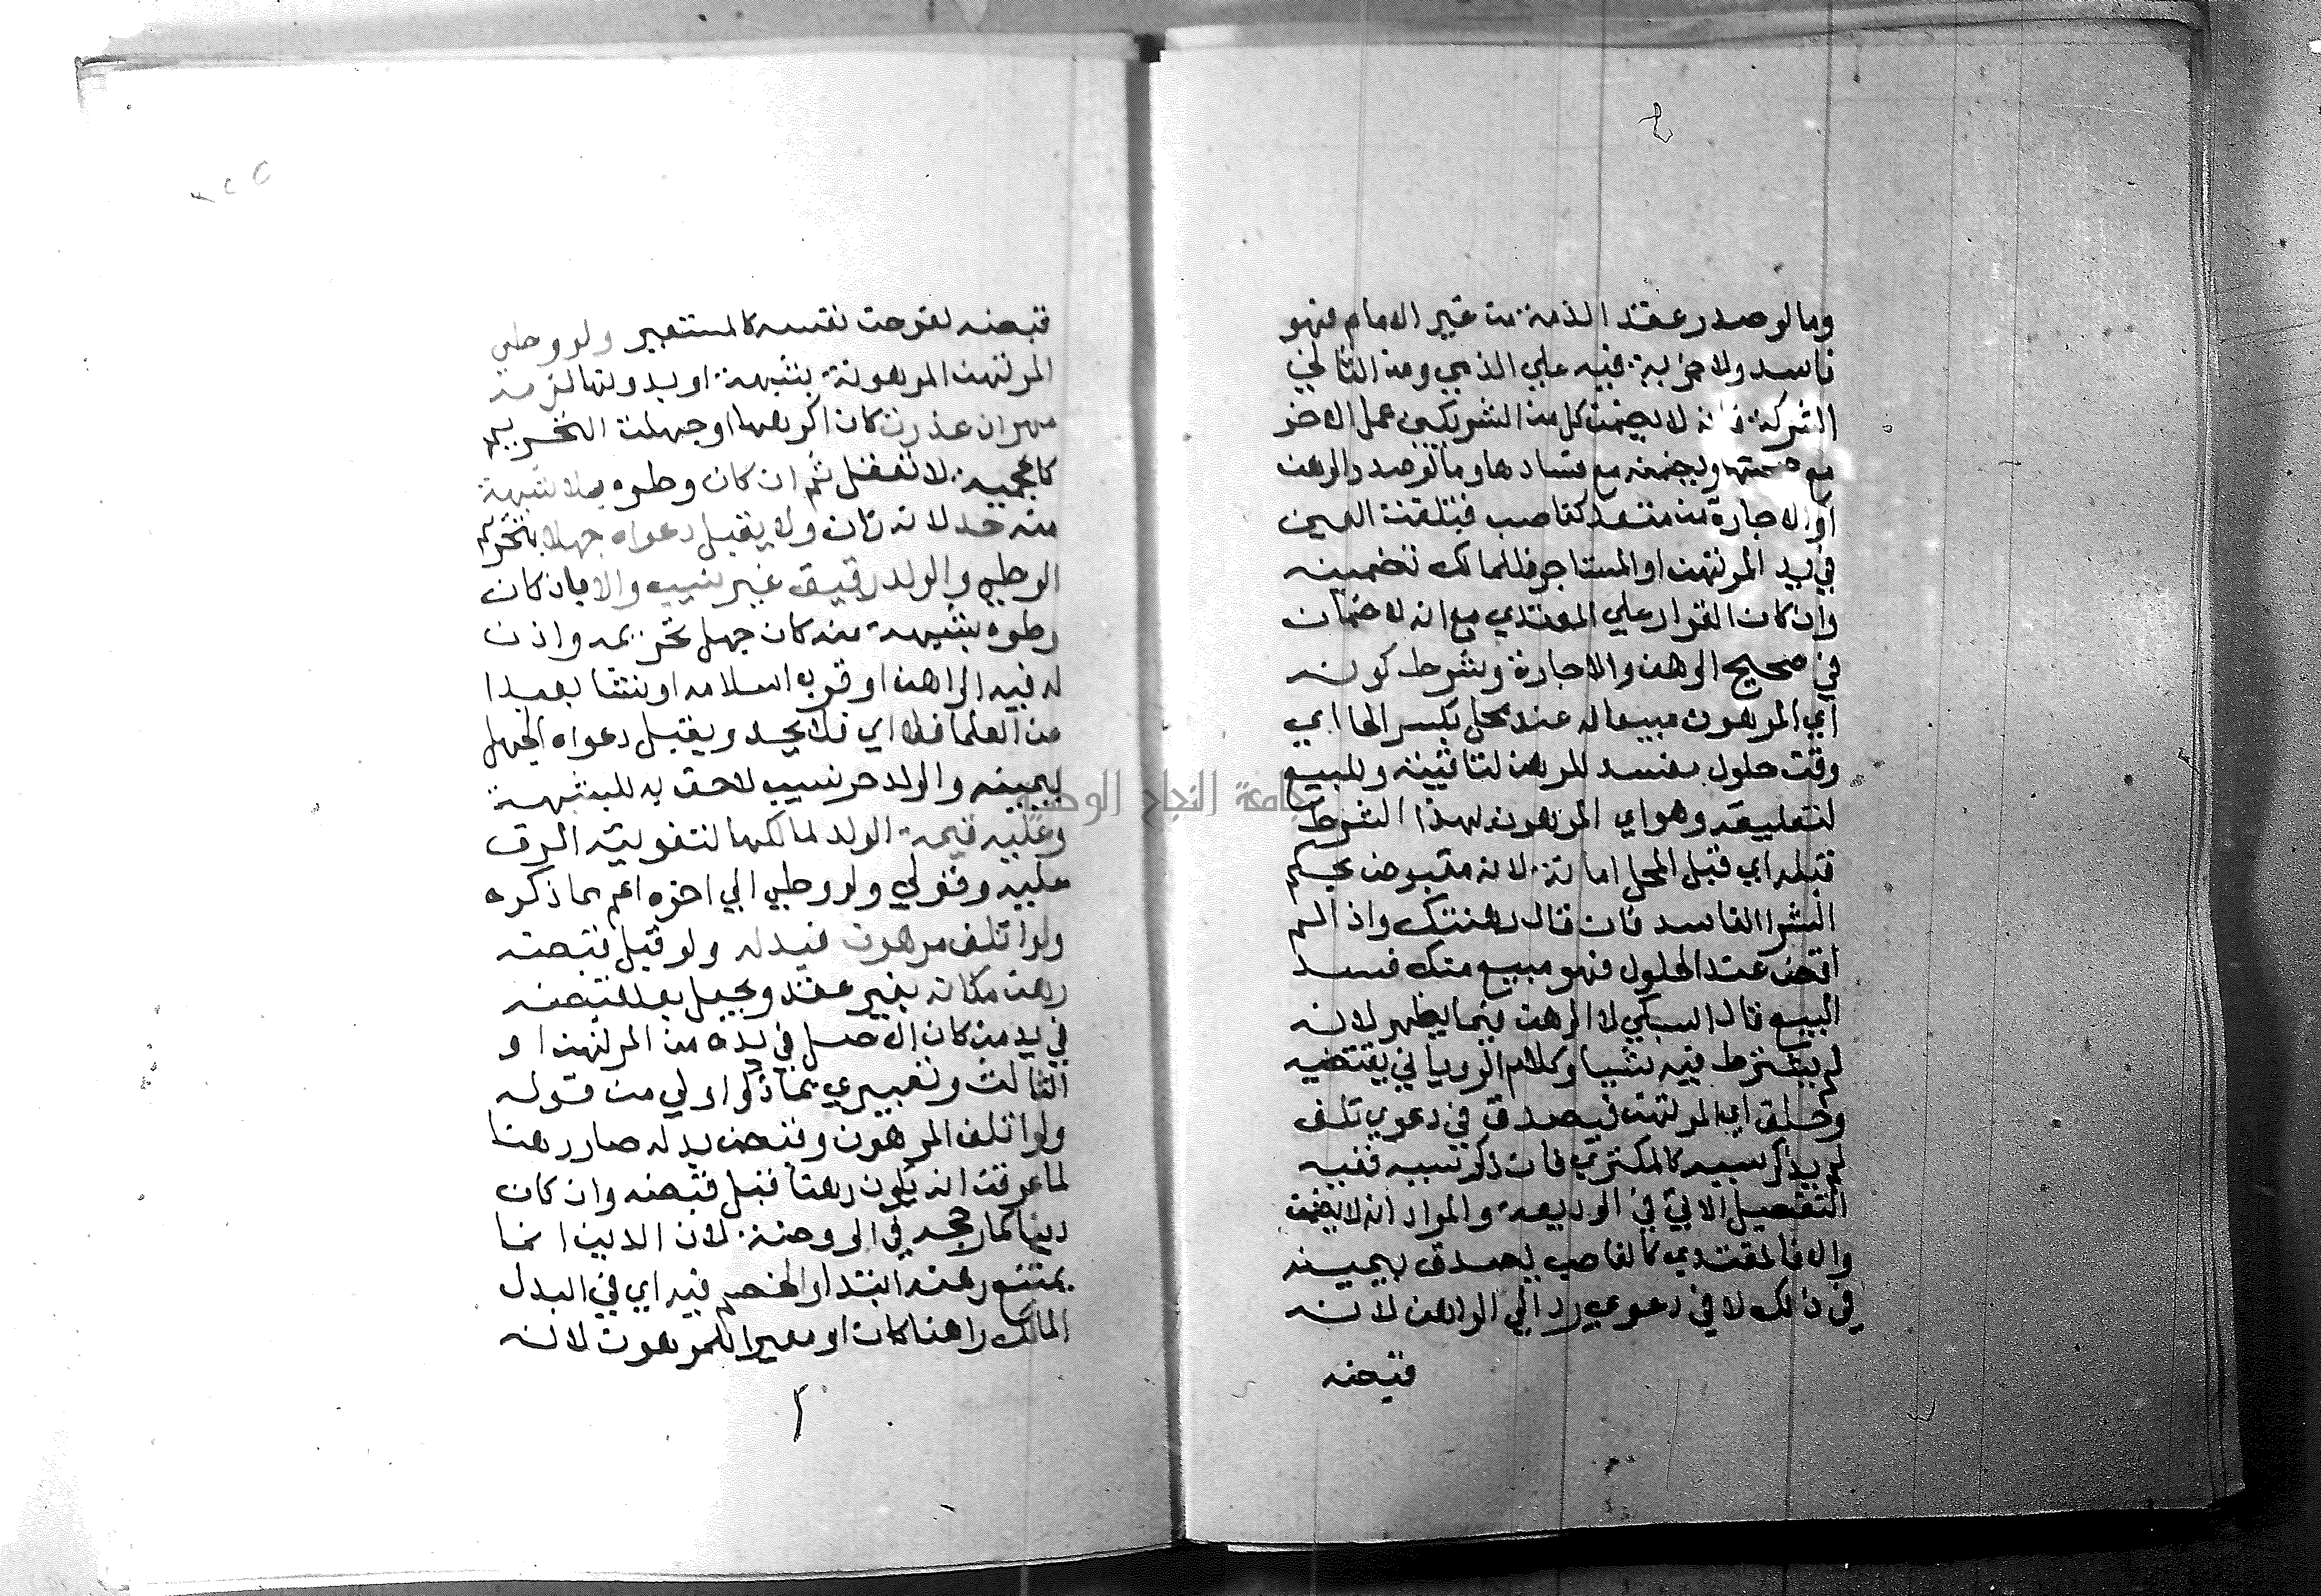 وما لو صدر عقد الذمة من غير الامام فهو
فاسد ولا جزية فيه علي الذمي ومن الثاني
الشركة فانه لا يضمن كل من الشريكين عمل الاخر
مع صحتها ويضمنه مع فسادها وما لو صدر الرهن
او الاجارة من متعد كغاصب فتلفت العين
في يد المرتهن او المستاجر فللمالك تضمينه
وان كان القرار علي المتعدي مع انه لا ضمان
في صحيح الرهن والاجارة وشرط كونه
اي المرهون مبيعا له عند محل بكسر الحا اي
وقت حلول مفسد للرهن لتاقيته وللبيع
لتعليقه وهو اي المرهون بهذا الشرط
قبله اي قبل المحل امانة لانه مقبوض بحكم
الشرا الفاسد فان قال رهنتك واذا لم
اقض عند الحلول فهو مبيع منك فسد
البيع قال السبكي لا الرهن فيما يظهر لانه
لم يشترط فيه شيا وكلام الروياني يقتضيه
وحلف اي المرتهن فيصدق في دعوي تلف
لم يذكر سببه كالمكتري فان ذكر سببه ففيه
التفصيل الاتي في الوديعة والمراد انه لا يضمن
والا فالمتعدي كالغاصب يصدق بيمينه
في ذلك لا في دعوي رد الي الراهن لانه
قبضه
قبضه لغرض نفسه كالمستعير ولو وطي
المرتهن المرهونة بشبهة او بدونها لزمه
مهر ان عذرت كان اكرهها او جهلت التحريم
كاعجمية لا تعقل ثم ان كان وطوه بلا شبهة
منه حد لانه زان ولا يقبل دعواه جهلا بتحريم
الوطي والولد رقيق غير نسيب والا بان كان
وطوه بشبهة منه كان جهل تحريمه واذن
له فيه الراهن او قرب اسلامه او نشا بعيدا
من العلما فلا اي فلا يحد ويقبل دعواه الجهل
بيمينه والولد حر نسيب لاحق به للشبهة
وعليه قيمة الولد لمالكها لتفويته الرق
عليه وقولي ولو وطي الي اخره اعم مما ذكره
ولو اتلف مرهون فبدله ولو قبل قبضه
رهن مكانه بغير عقد ويجعل بعد قبضه
في يد من كان الاصل في يده من المرتهن او
الثالث وتعبيري بما ذكر اولي من قوله
ولو اتلف المرهون وقبض بدله صار رهنا
لما عرفت انه يكون رهنا قبل قبضه وان كان
دينا كما رجحه في الروضة لان الدين انما
يمتنع رهنه ابتداء والخصم فيه اي في البدل
المالك راهنا كان او معيرا للمرهون لانه
جامعة النجاح الوطنية